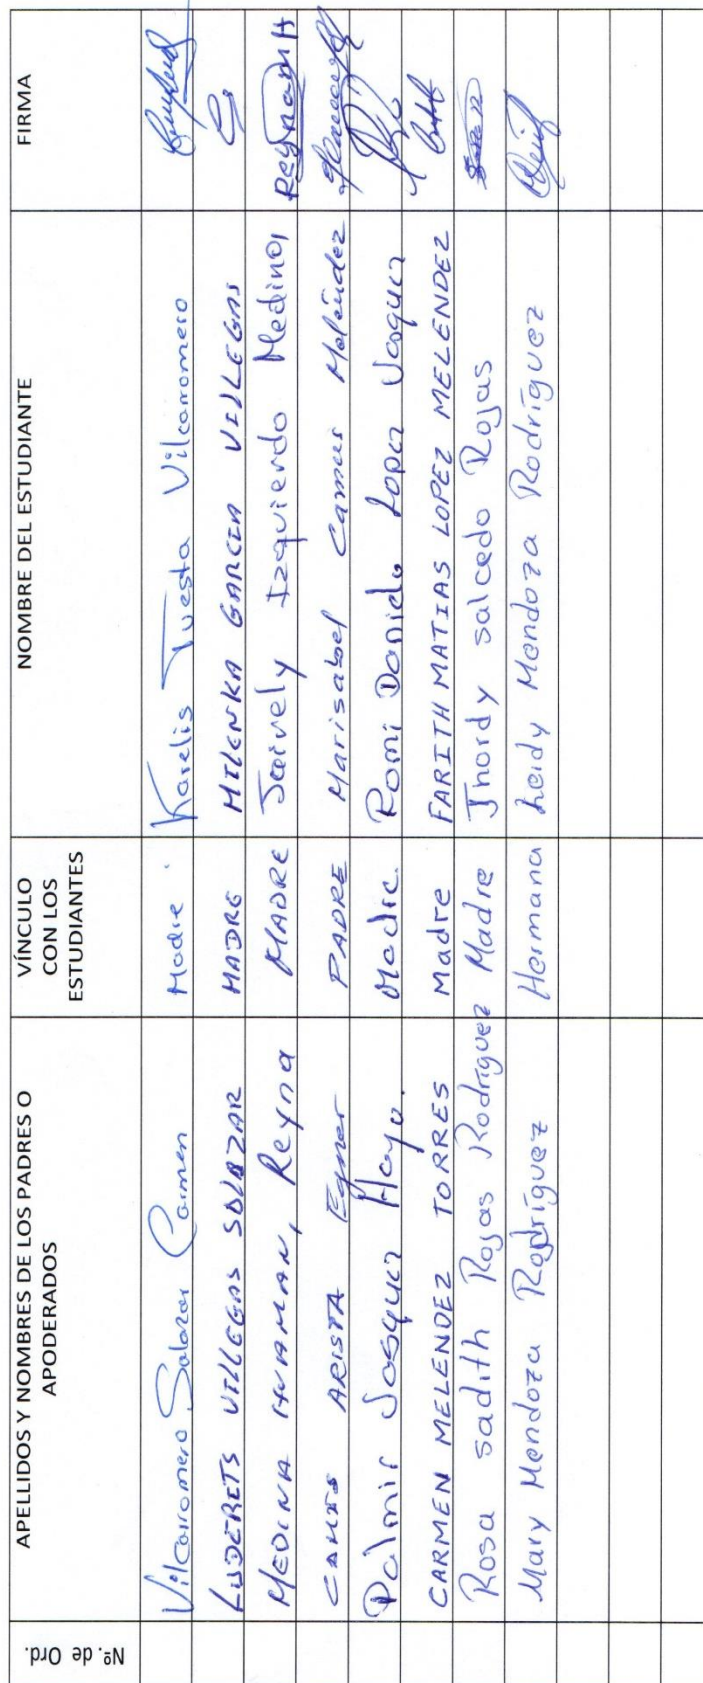 Nº. de Ord. APELLIDOS Y NOMBRES DE LOS PADRES O APODERADOS VÍNCULO CON LOS ESTUDIANTES NOMBRE DEL ESTUDIANTE FIRMA
Vilcarromero Salazar Carmen Madre Karelis Tuesta Vilcarromero
LUDERITS VILLEGAS SALAZAR MADRE MILENKA GARCIA VILLEGAS
MEDINA HUAMAN, Reyna MADRE Jaively Izquierdo Medina ReynaMH
CAMUS ARISTA Egner PADRE Marisabel Camus Meléndez
Palmir Vasquez Hoyo. Madre Romi Daniela Lopez Vasquez
CARMEN MELENDEZ TORRES Madre FARITH MATIAS LOPEZ MELENDEZ
Rosa sadith Rojas Rodríguez Madre Jhordy salcedo Rojas
Mary Mendoza Rodríguez Hermana Leidy Mendoza Rodríguez